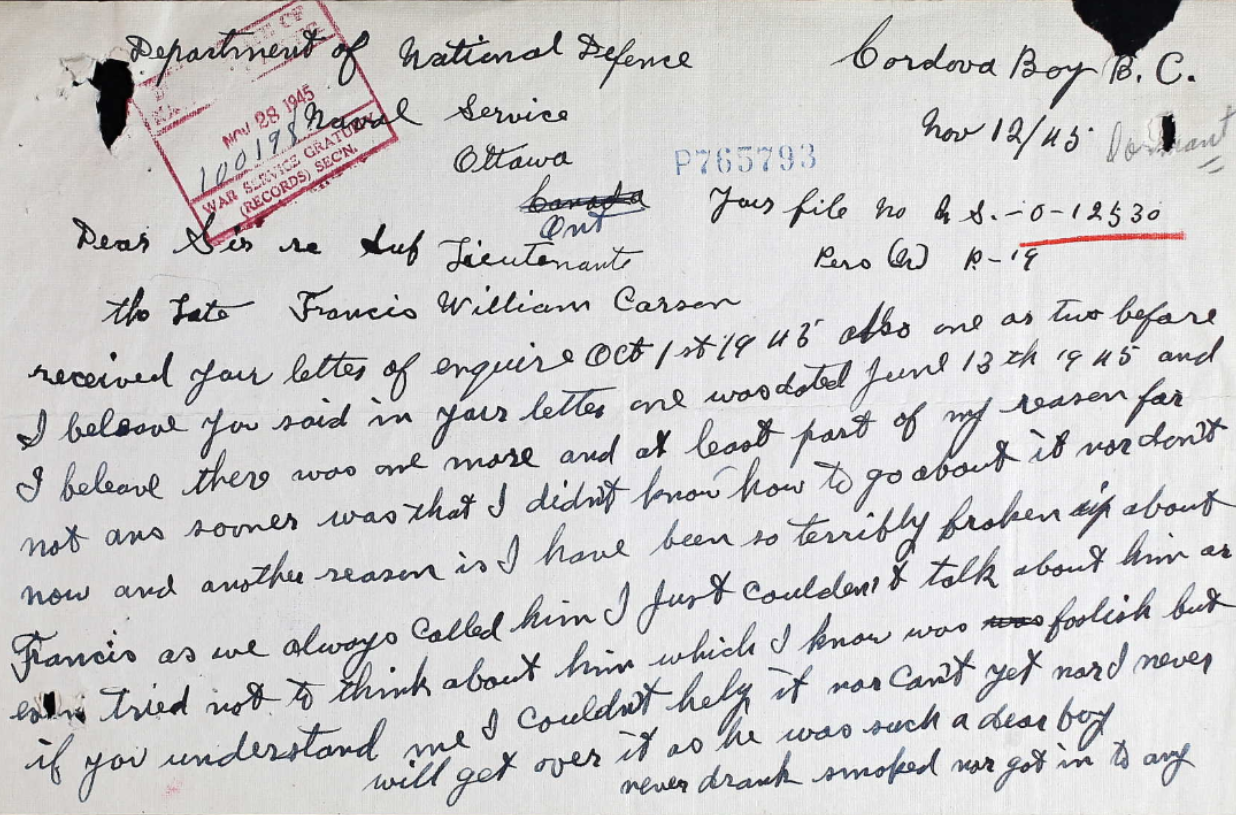 Department of National Defence
Cordova Bay B. C.
NOV 28 1945
100198
WAR SERVICE GRATUITY
(RECORDS) SEC'N.
Naval Service
Nov 12/45
Dormant
Ottawa
P765793
Canada
Ont
Your file no N. S. - 0-12530
Dear Sir re Sub Lieutenante
Pers (N) R-19
the Late Francis William Carson
received your letter of enquire Oct 1st 1945 also one or two before
I beleave you said in your letter one was dated June 13th 1945 and
I beleave there was one more and at least part of my reason for
not ans sooner was that I didn't know how to go about it nor don't
now and another reason is I have been so terribly broken up about
Francis as we always called him I just couldent talk about him or
even tried not to think about him which I know was was foolish but
if you understand me I couldn't help it nor can't yet nor I never
will get over it as he was such a dear boy
never drank smoked nor got in to any